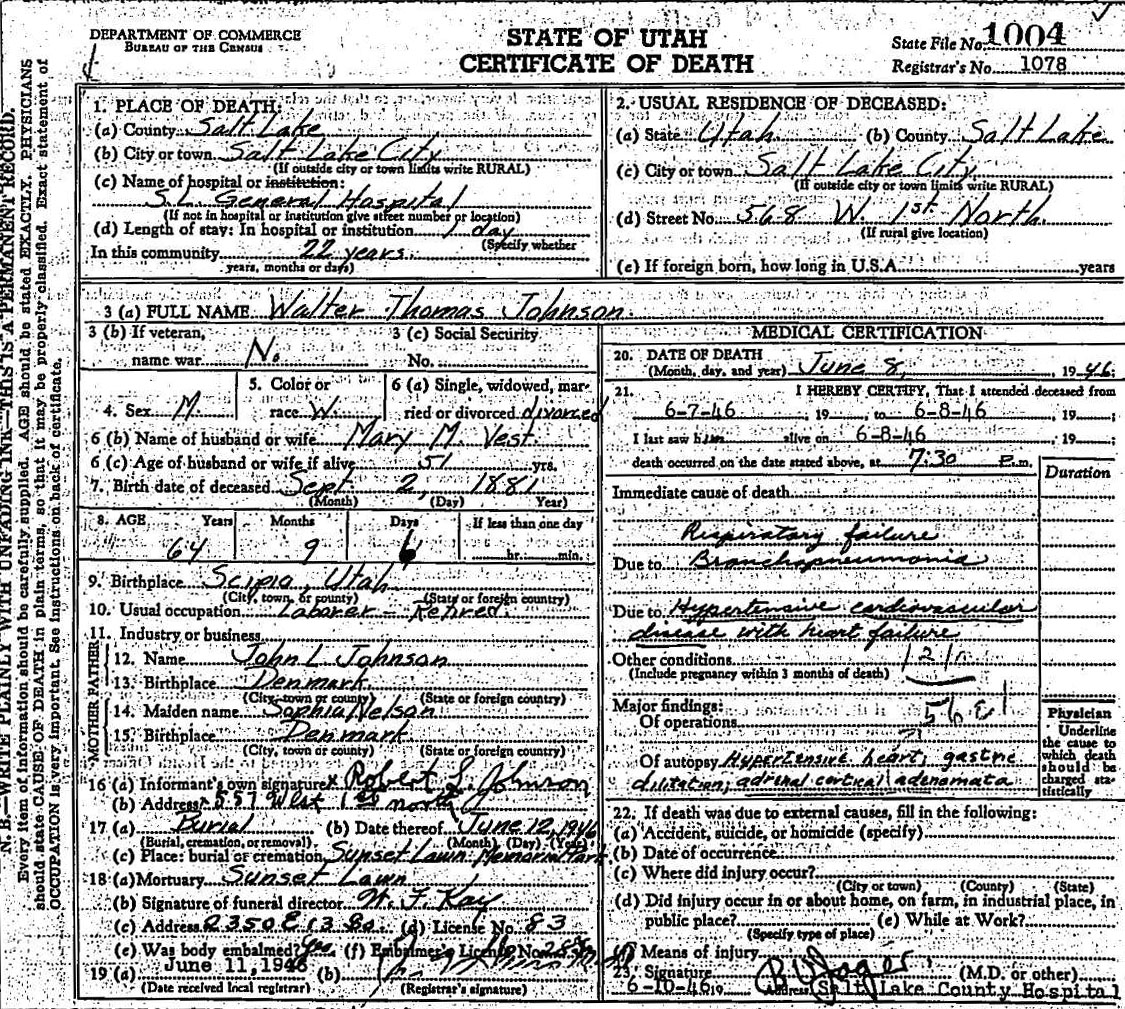 DEPARTMENT OF COMMERCE
BUREAU OF THE CENSUS
STATE OF UTAH
CERTIFICATE OF DEATH
State File No. 1004
Registrar's No. 1078
N. B.—WRITE PLAINLY WITH UNFADING INK—THIS IS A PERMANENT RECORD.
Every item of information should be carefully supplied. AGE should be stated EXACTLY. PHYSICIANS
should state CAUSE OF DEATH in plain terms, so that it may be properly classified. Exact statement of
OCCUPATION is very important. See instructions on back of certificate.
1. PLACE OF DEATH:
(a) County Salt Lake
(b) City or town Salt Lake City
(If outside city or town limits write RURAL)
(c) Name of hospital or institution:
S.L. General Hospital
(If not in hospital or institution give street number or location)
(d) Length of stay: In hospital or institution 1 day
(Specify whether
In this community 22 years.
years, months or days)
2. USUAL RESIDENCE OF DECEASED:
(a) State Utah (b) County Salt Lake
(c) City or town Salt Lake City
(If outside city or town limits write RURAL)
(d) Street No. 568 W. 1st North
(If rural give location)
(e) If foreign born, how long in U.S.A. years
3 (a) FULL NAME Walter Thomas Johnson
3 (b) If veteran, 3 (c) Social Security
name war No No.
4. Sex M 5. Color or race W. 6 (a) Single, widowed, married or divorced divorced
6 (b) Name of husband or wife Mary M. Vest
6 (c) Age of husband or wife if alive 51 yrs.
7. Birth date of deceased Sept 2, 1881
(Month) (Day) Year)
8. AGE Years Months Days If less than one day
64 9 6 hr. min.
9. Birthplace Scipio, Utah
(City, town, or county) (State or foreign country)
10. Usual occupation Laborer - Retired.
11. Industry or business
FATHER
12. Name John L Johnson
13. Birthplace Denmark
(City, town or county) (State or foreign country)
MOTHER
14. Maiden name Sophia Nelson
15. Birthplace Denmark
(City, town or county) (State or foreign country)
16 (a) Informant's own signature x Robert L. Johnson
(b) Address 557 West 1st north
17 (a) Burial (b) Date thereof June 12, 1946
(Burial, cremation, or removal) (Month) (Day) (Year)
(c) Place: burial or cremation Sunset Lawn Memorial Park
18 (a) Mortuary Sunset Lawn
(b) Signature of funeral director W. F. Kay
(c) Address 2350 E 13 So. (d) License No. 83
(e) Was body embalmed? yes (f) Embalmer's License No.
19 (a) June 11, 1946 (b)
(Date received local registrar) (Registrar's signature)
MEDICAL CERTIFICATION
20. DATE OF DEATH
(Month, day, and year) June 8, 1946
21. I HEREBY CERTIFY, That I attended deceased from
6-7-46, 19 to 6-8-46, 19
I last saw him alive on 6-8-46, 19
death occurred on the date stated above, at 7:30 P.m.
Duration
Immediate cause of death
Respiratory failure
Due to Bronchopneumonia
Due to Hypertensive cardiovascular
disease with heart failure
Other conditions
(Include pregnancy within 3 months of death)
Major findings:
Of operations
Of autopsy Hypertensive heart, gastric
dilitation, adrenal cortical adenomata
Physician
Underline
the cause to
which death
should be
charged sta-
tistically
22. If death was due to external causes, fill in the following:
(a) Accident, suicide, or homicide (specify)
(b) Date of occurrence
(c) Where did injury occur?
(City or town) (County) (State)
(d) Did injury occur in or about home, on farm, in industrial place, in
public place? (e) While at Work?
(Specify type of place)
Means of injury
23. Signature (M.D. or other)
6-10-46 19 Address Salt Lake County Hospital